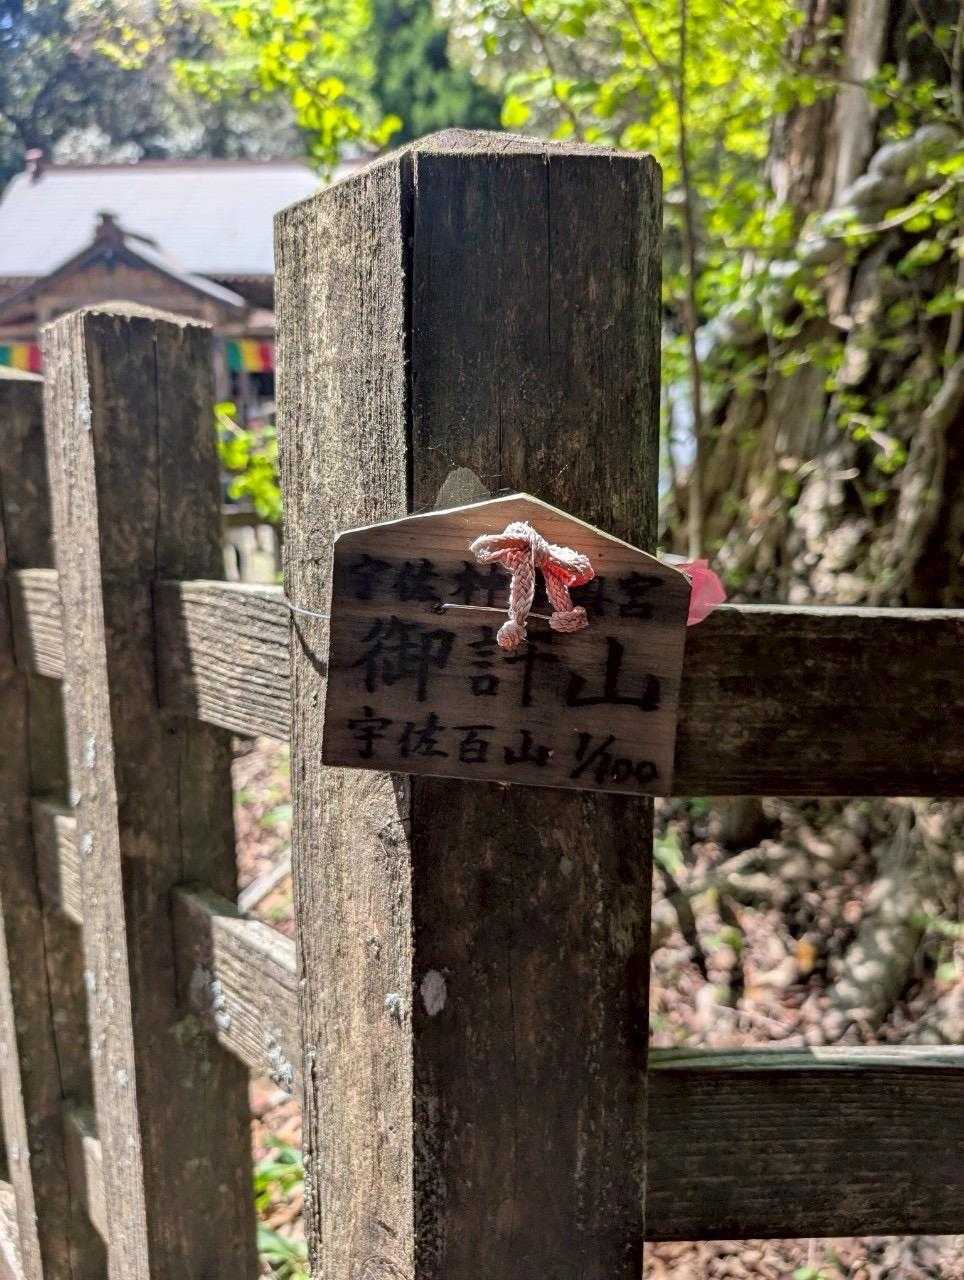 宇佐神宮奥宮
御許山
宇佐百山 1/100